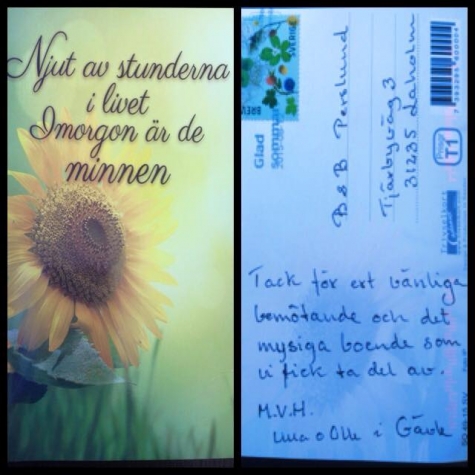 Njut av stunderna
i livet
Imorgon är de
minnen
SVERIGE
BREV
Glad
sommar
B & B Perslund
Tjärbyväg 3
31235 Laholm
Prisgr.
T1
Tack för ert vänliga
bemötande och det
mysiga boende som
vi fick ta del av.
M.V.H.
o Olle i Gävle